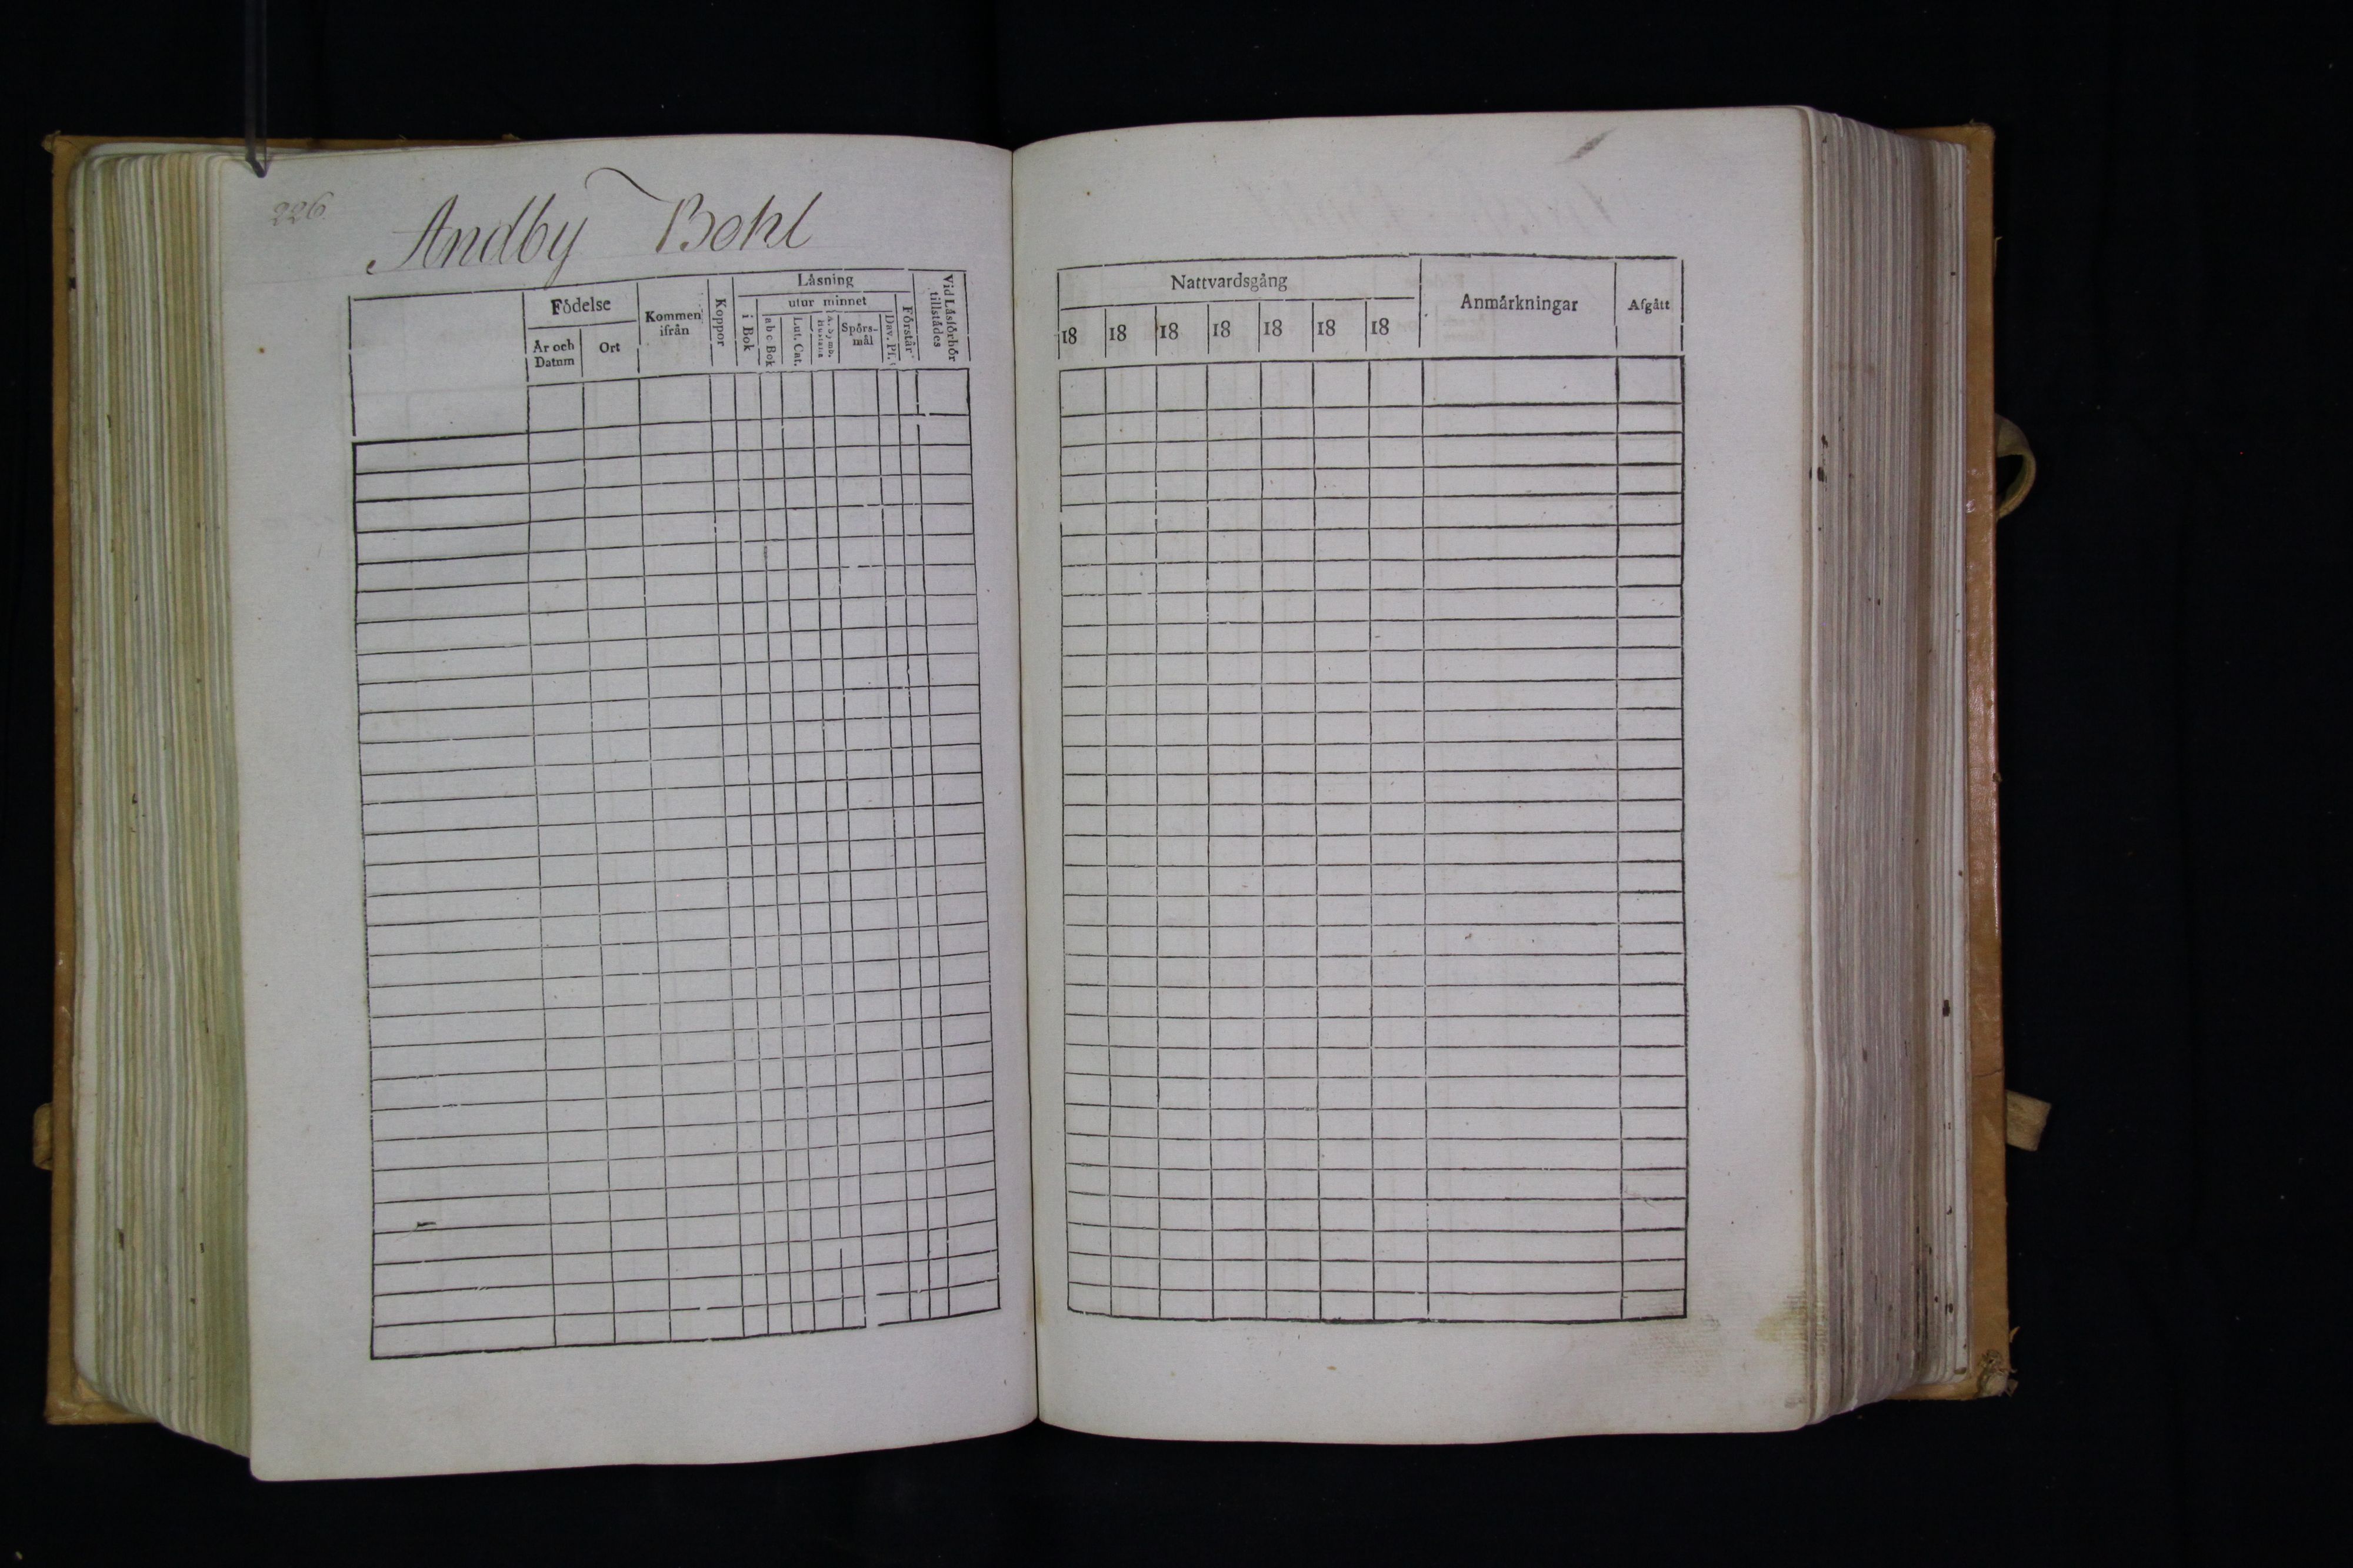 226
Andby Bohl
Läsning
Födelse
Kommen ifrån
Koppor
utur minnet
Förstår
Vid Läsförhör tillstädes
År och Datum
Ort
i Bok
a b c Bok
Lut. Cat.
Spörsmål
Dav. Ps.
Nattvardsgång
Anmärkningar
Afgått
18 18 18 18 18 18 18